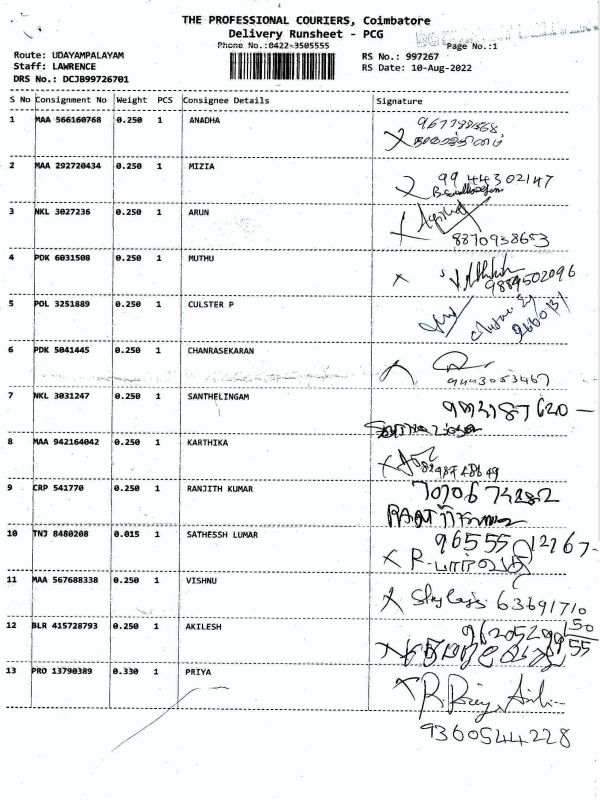 THE PROFESSIONAL COURIERS, Coimbatore
Delivery Runsheet - PCG
Phone No.:0422-3505555
Page No.:1
Route: UDAYAMPALAYAM
RS No.: 997267
Staff: LAWRENCE
RS Date: 10-Aug-2022
DRS No.: DCJB99726701
S No Consignment No Weight PCS Consignee Details Signature
1 MAA 566160768 0.250 1 ANADHA
2 MAA 292720434 0.250 1 MIZIA
99 44302147
3 NKL 3027236 0.250 1 ARUN
8870938653
4 PDK 6031508 0.250 1 MUTHU
9884502096
5 POL 3251889 0.250 1 CULSTER P
6 PDK 5041445 0.250 1 CHANRASEKARAN
9443053467
7 NKL 3031247 0.250 1 SANTHELINGAM
8 MAA 942164042 0.250 1 KARTHIKA
9 CRP 541770 0.250 1 RANJITH KUMAR
10 TNJ 8480208 0.015 1 SATHESSH LUMAR
96555 12167-
11 MAA 567688338 0.250 1 VISHNU
63691710
12 BLR 415728793 0.250 1 AKILESH
50
55
13 PRO 13790389 0.330 1 PRIYA
9360544228